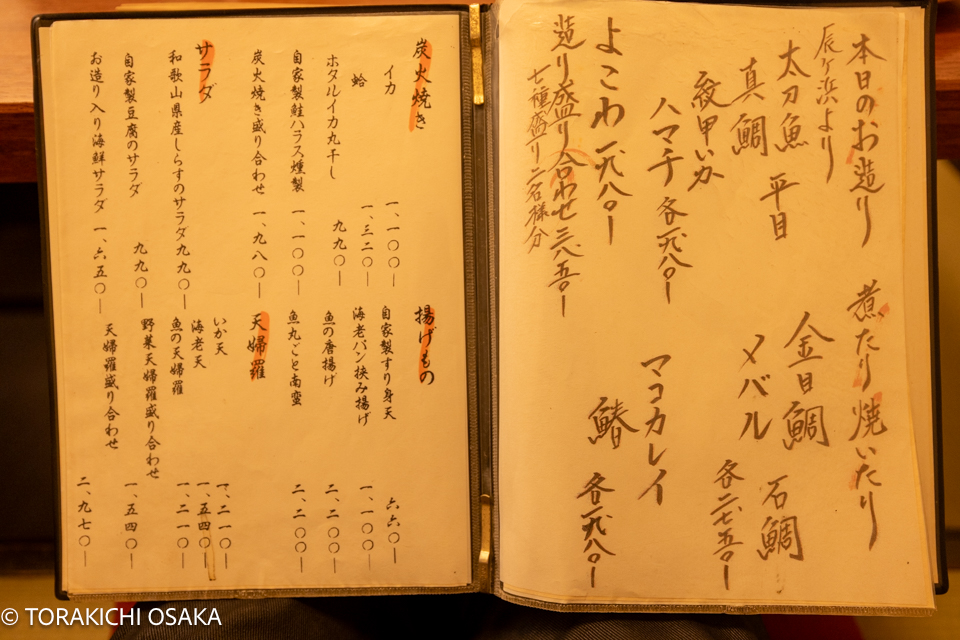 本日のお造り
辰ヶ浜より
太刀魚 平目
真鯛
紋甲いか
ハマチ 各一九八〇ー
よこわ 一九八〇ー
造り盛り合わせ 三八五〇ー
七種盛り二名様分
煮たり焼いたり
金目鯛 石鯛
メバル 各二七五〇ー
マコカレイ
鰆 各一九八〇ー
炭火焼き
イカ 一、一〇〇ー
蛤 一、三二〇ー
ホタルイカ丸干し 九九〇ー
自家製鮭ハラス燻製 一、一〇〇ー
炭火焼き盛り合わせ 一、九八〇ー
サラダ
和歌山県産しらすのサラダ 九九〇ー
自家製豆腐のサラダ 九九〇ー
お造り入り海鮮サラダ 一、六五〇ー
揚げもの
自家製すり身天 六六〇ー
海老パン挟み揚げ 一、一〇〇ー
魚の唐揚げ 二、二〇〇ー
魚丸ごと南蛮 二、二〇〇ー
天婦羅
いか天 一、二一〇ー
海老天 一、五四〇ー
魚の天婦羅 一、二一〇ー
野菜天婦羅盛り合わせ 一、五四〇ー
天婦羅盛り合わせ 二、九七〇ー
© TORAKICHI OSAKA